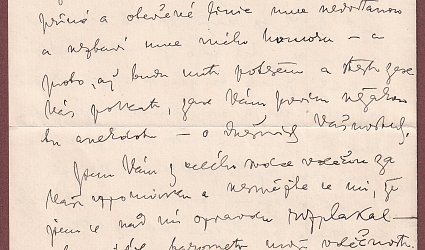 přímé a otevřené linie mne nedostanou
a nezbaví mne mého humoru – a
proto, až budu míti potěšení a štěstí zase
Vás potkati, zase Vám povím nějakou
tu anekdotu – o dnešních Vašnostech.
Jsem Vám z celého srdce vděčen za
Vaši vzpomínku a nesmějte se mi, že
jsem se nad ní opravdu rozplakal –
barometr mojí vděčnosti